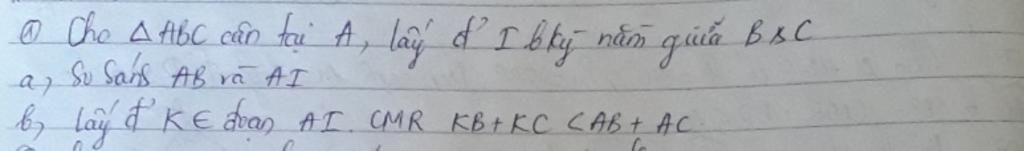 ① Cho △ABC cân tại A, lấy đ' I bkỳ nằm giữa B & C
a, So sánh AB và AI
b, Lấy đ' K ∈ đoạn AI. CMR KB + KC < AB + AC